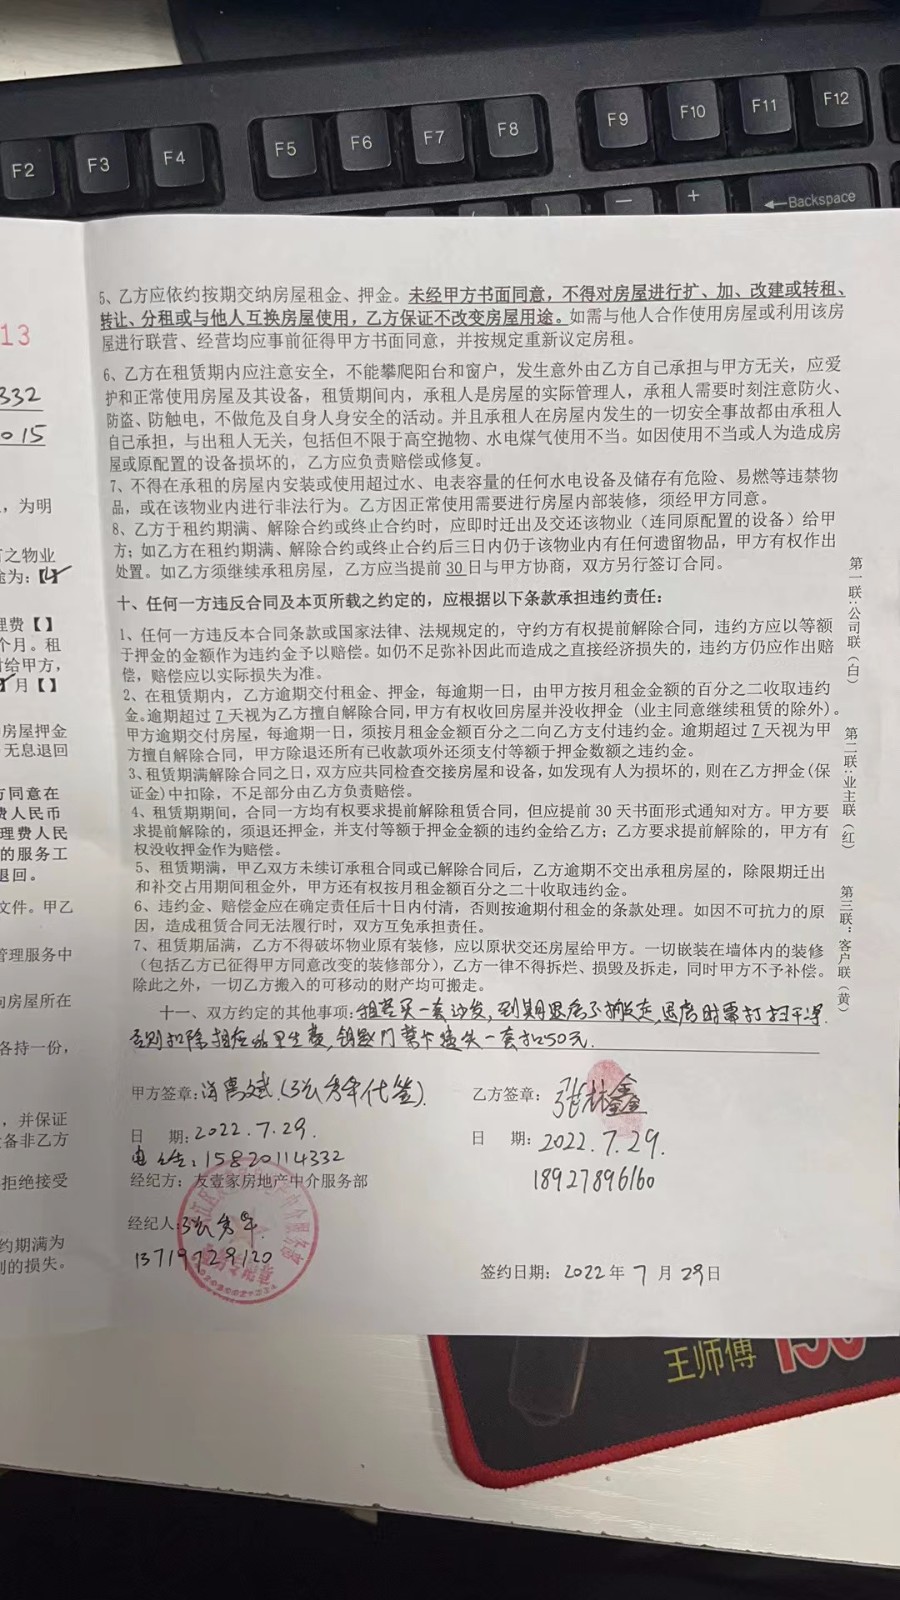 F2 F3 F4 F5 F6 F7 F8 F9 F10 F11 F12
( ) — + ←Backspace
13
332
015
，为明
有之物业
途为：【
理费【 】
个月。租
付给甲方，
月【 】
房屋押金
无息退回
方同意在
费人民币
理费人民
的服务工
退回。
文件。甲乙
管理服务中
向房屋所在
各持一份，
，并保证
备非乙方
拒绝接受
约期满为
别的损失。
5、乙方应依约按期交纳房屋租金、押金。未经甲方书面同意，不得对房屋进行扩、加、改建或转租、
转让、分租或与他人互换房屋使用，乙方保证不改变房屋用途。如需与他人合作使用房屋或利用该房
屋进行联营、经营均应事前征得甲方书面同意，并按规定重新议定房租。
6、乙方在租赁期内应注意安全，不能攀爬阳台和窗户，发生意外由乙方自己承担与甲方无关，应爱
护和正常使用房屋及其设备，租赁期间内，承租人是房屋的实际管理人，承租人需要时刻注意防火、
防盗、防触电，不做危及自身人身安全的活动。并且承租人在房屋内发生的一切安全事故都由承租人
自己承担，与出租人无关，包括但不限于高空抛物、水电煤气使用不当。如因使用不当或人为造成房
屋或原配置的设备损坏的，乙方应负责赔偿或修复。
7、不得在承租的房屋内安装或使用超过水、电表容量的任何水电设备及储存有危险、易燃等违禁物
品，或在该物业内进行非法行为。乙方因正常使用需要进行房屋内部装修，须经甲方同意。
8、乙方于租约期满、解除合约或终止合约时，应即时迁出及交还该物业（连同原配置的设备）给甲
方；如乙方在租约期满、解除合约或终止合约后三日内仍于该物业内有任何遗留物品，甲方有权作出
处置。如乙方须继续承租房屋，乙方应当提前30日与甲方协商，双方另行签订合同。
十、任何一方违反合同及本页所载之约定的，应根据以下条款承担违约责任：
1、任何一方违反本合同条款或国家法律、法规规定的，守约方有权提前解除合同，违约方应以等额
于押金的金额作为违约金予以赔偿。如仍不足弥补因此而造成之直接经济损失的，违约方仍应作出赔
偿，赔偿应以实际损失为准。
2、在租赁期内，乙方逾期交付租金、押金，每逾期一日，由甲方按月租金金额的百分之二收取违约
金。逾期超过7天视为乙方擅自解除合同，甲方有权收回房屋并没收押金（业主同意继续租赁的除外）。
甲方逾期交付房屋，每逾期一日，须按月租金金额百分之二向乙方支付违约金。逾期超过7天视为甲
方擅自解除合同，甲方除退还所有已收款项外还须支付等额于押金数额之违约金。
3、租赁期满解除合同之日，双方应共同检查交接房屋和设备，如发现有人为损坏的，则在乙方押金(保
证金)中扣除，不足部分由乙方负责赔偿。
4、租赁期期间，合同一方均有权要求提前解除租赁合同，但应提前30天书面形式通知对方。甲方要
求提前解除的，须退还押金，并支付等额于押金金额的违约金给乙方；乙方要求提前解除的，甲方有
权没收押金作为赔偿。
5、租赁期满，甲乙双方未续订承租合同或已解除合同后，乙方逾期不交出承租房屋的，除限期迁出
和补交占用期间租金外，甲方还有权按月租金额百分之二十收取违约金。
6、违约金、赔偿金应在确定责任后十日内付清，否则按逾期付租金的条款处理。如因不可抗力的原
因，造成租赁合同无法履行时，双方互免承担责任。
7、租赁期届满，乙方不得破坏物业原有装修，应以原状交还房屋给甲方。一切嵌装在墙体内的装修
（包括乙方已征得甲方同意改变的装修部分），乙方一律不得拆烂、损毁及拆走，同时甲方不予补偿。
除此之外，一切乙方搬入的可移动的财产均可搬走。
十一、双方约定的其他事项：租客买一套沙发，到期退房不搬走，退房时需打扫干净
否则扣除相应的卫生费，钥匙门禁卡遗失一套扣50元.
第一联：公司联（白）
第二联：业主联（红）
第三联：客户联（黄）
甲方签章：（张秀年代签）.
日 期：2022.7.29.
电话：15820114332
经纪方：友壹家房地产中介服务部
经纪人：张秀年
13719729120
乙方签章：张林鑫
日 期：2022.7.29.
18927896160
签约日期：2022年7月29日
王师傅 150